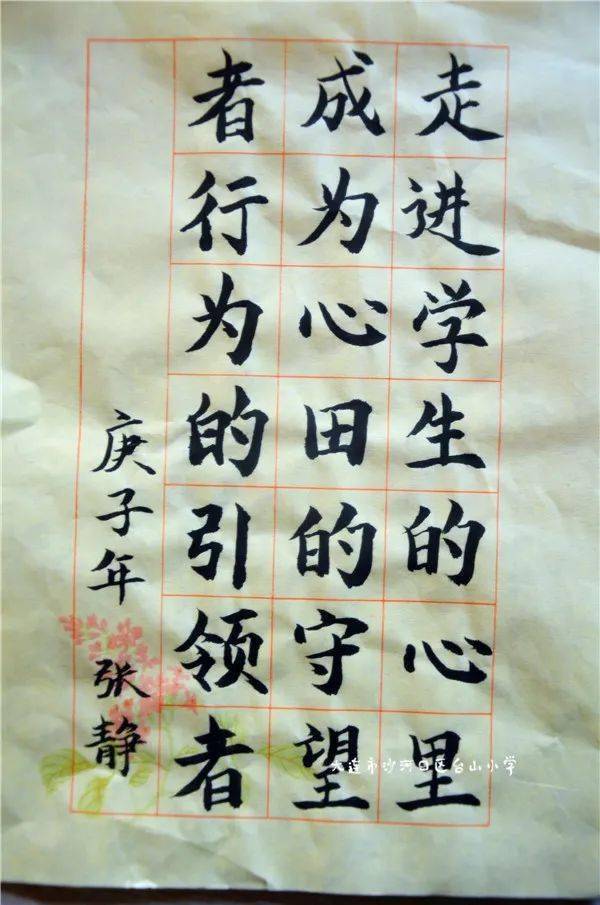 走进学生的心里
成为心田的守望
者行为的引领者
庚子年 张静
大连市沙河口区台山小学